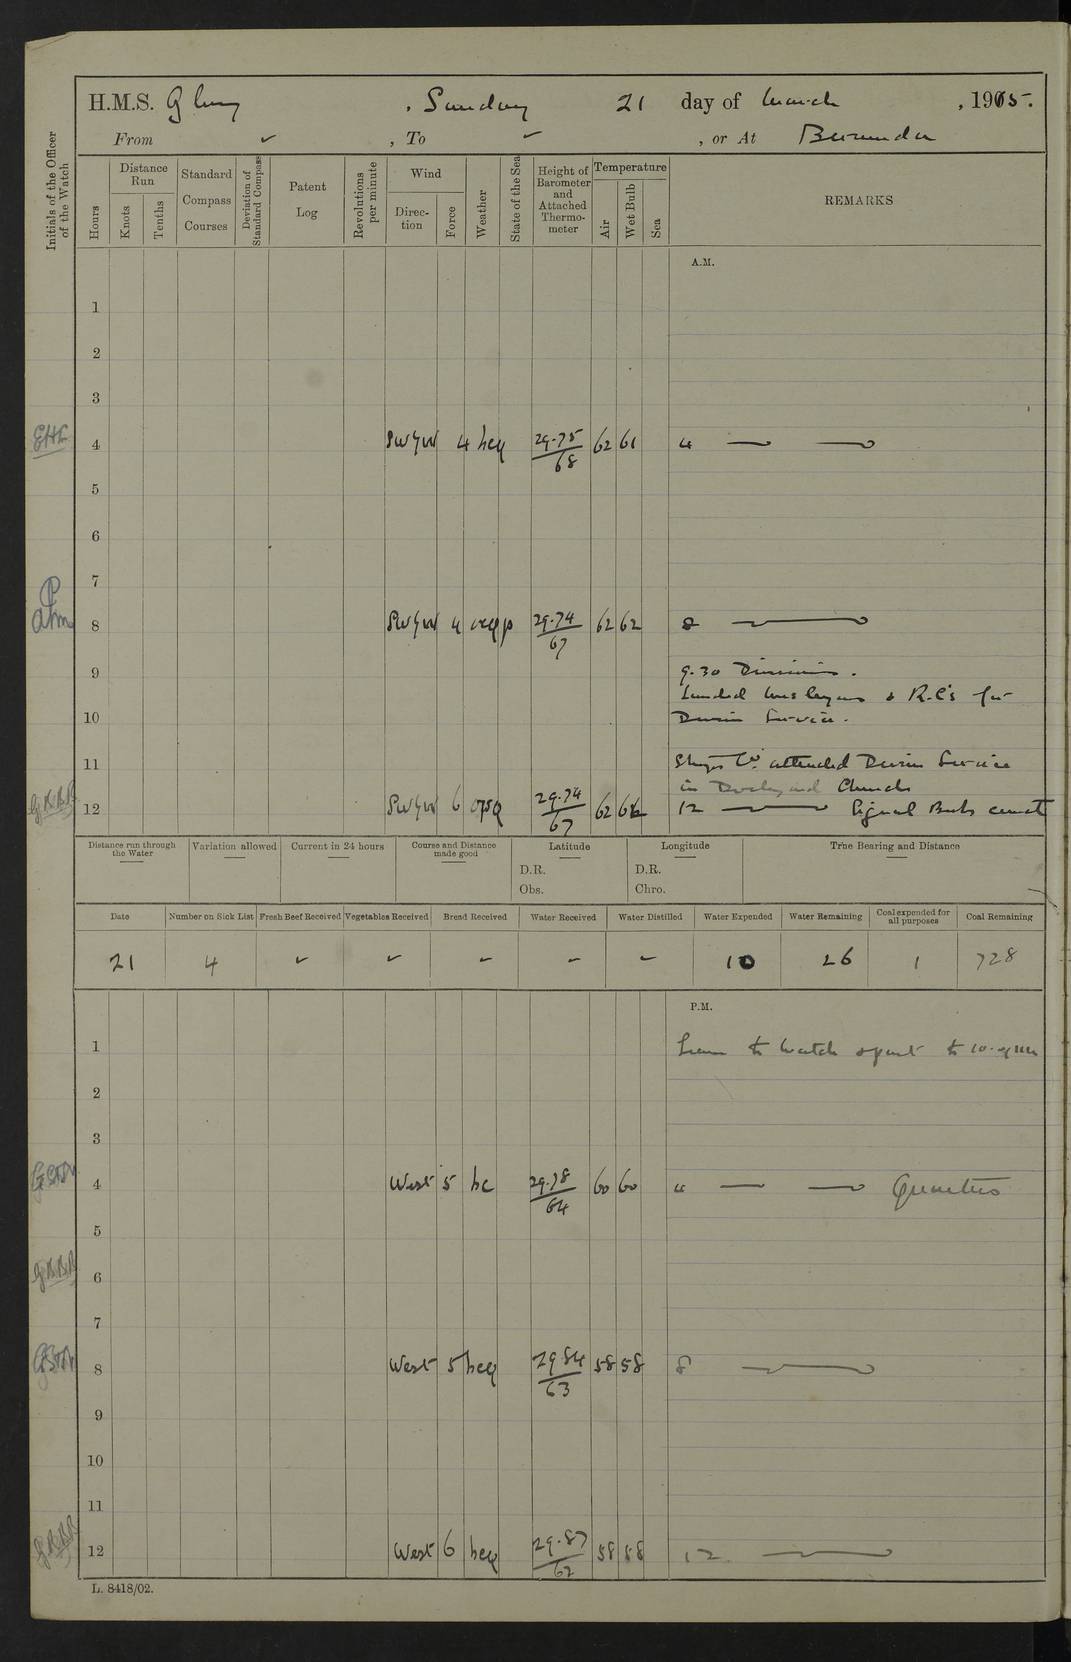 H.M.S. Glory , Sunday 21 day of March , 1915.
From ✓ , To ✓ , or At Bermuda
Initials of the Officer of the Watch
Hours
Distance Run
Knots
Tenths
Standard Compass Courses
Deviation of Standard Compass
Patent Log
Revolutions per minute
Wind
Direc-tion
Force
Weather
State of the Sea
Height of Barometer and Attached Thermo-meter
Temperature
Air
Wet Bulb
Sea
REMARKS
A.M.
1
2
3
4 SWyW 4 bcq 29.75/68 62 61 4
5
6
7
8 SWyW 4 ocqp 29.74/67 62 62 8
9 9.30 Divisions.
Landed Wesleyans & R.C's for
10 Divine Service.
11 Ship's Co. attended Divine Service
in Dockyard Church
12 SWyW 6 opq 29.74/67 62 62 12 Signal Books correct
Distance run through the Water
Variation allowed
Current in 24 hours
Course and Distance made good
Latitude
D.R.
Obs.
Longitude
D.R.
Chro.
True Bearing and Distance
Date Number on Sick List Fresh Beef Received Vegetables Received Bread Received Water Received Water Distilled Water Expended Water Remaining Coal expended for all purposes Coal Remaining
21 4 ✓ ✓ ✓ ✓ ✓ 10 26 1 728
P.M.
1 Leave to Watch apart to 10.
2
3
4 West 5 bc 29.78/64 60 60 4 Quarters
5
6
7
8 West 5 bcq 29.84/63 58 58 8
9
10
11
12 West 6 bcq 29.87/62 58 58 12
L. 8418/02.